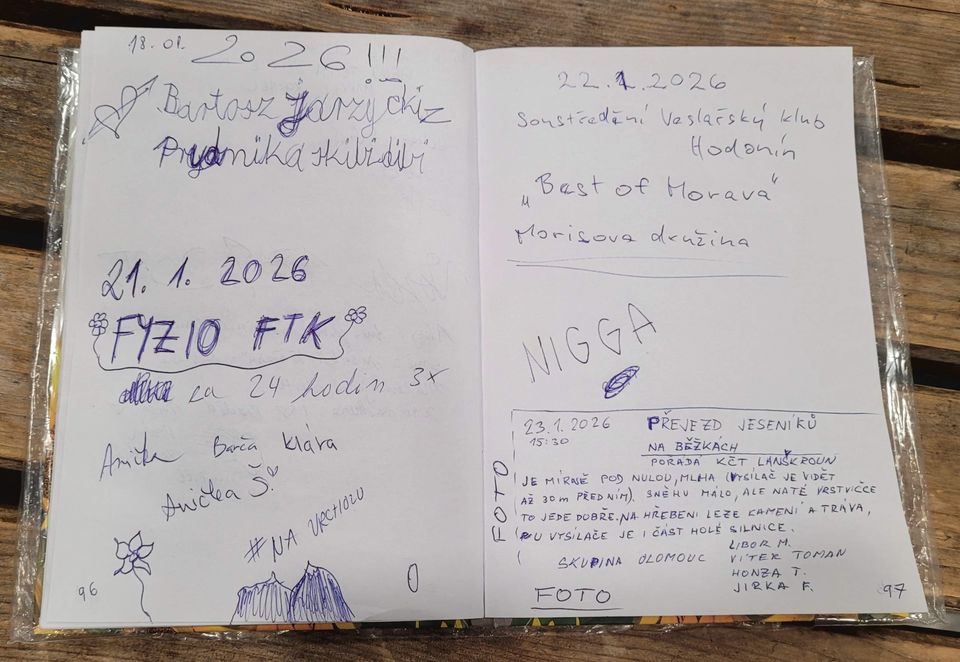 18. 01. 2026 !!!
Bartosz
skibidibi
21. 1. 2026
FYZIO FTK
za 24 hodin 3x
Anička Barča Klára
Anička Š.
#NA VRCHOLU
96
22.1.2026
Soustředění Veslařský klub
Hodonín
„Best of Morava"
Morisova družina
NIGGA
23.1.2026 PŘEJEZD JESENÍKŮ
15:30 NA BĚŽKÁCH
PORADA KČT LANŠKROUN
FOTO
JE MÍRNĚ POD NULOU, MLHA (VYSÍLAČ JE VIDĚT
AŽ 30m PŘED NÍM). SNĚHU MÁLO, ALE NA TÉ VRSTVIČCE
TO JEDE DOBŘE. NA HŘEBENI LEZE KAMENÍ A TRÁVA,
U VYSÍLAČE JE I ČÁST HOLÉ SILNICE.
LIBOR M.
SKUPINA OLOMOUC VÍTEK TOMAN
HONZA T.
JIRKA F.
FOTO
97